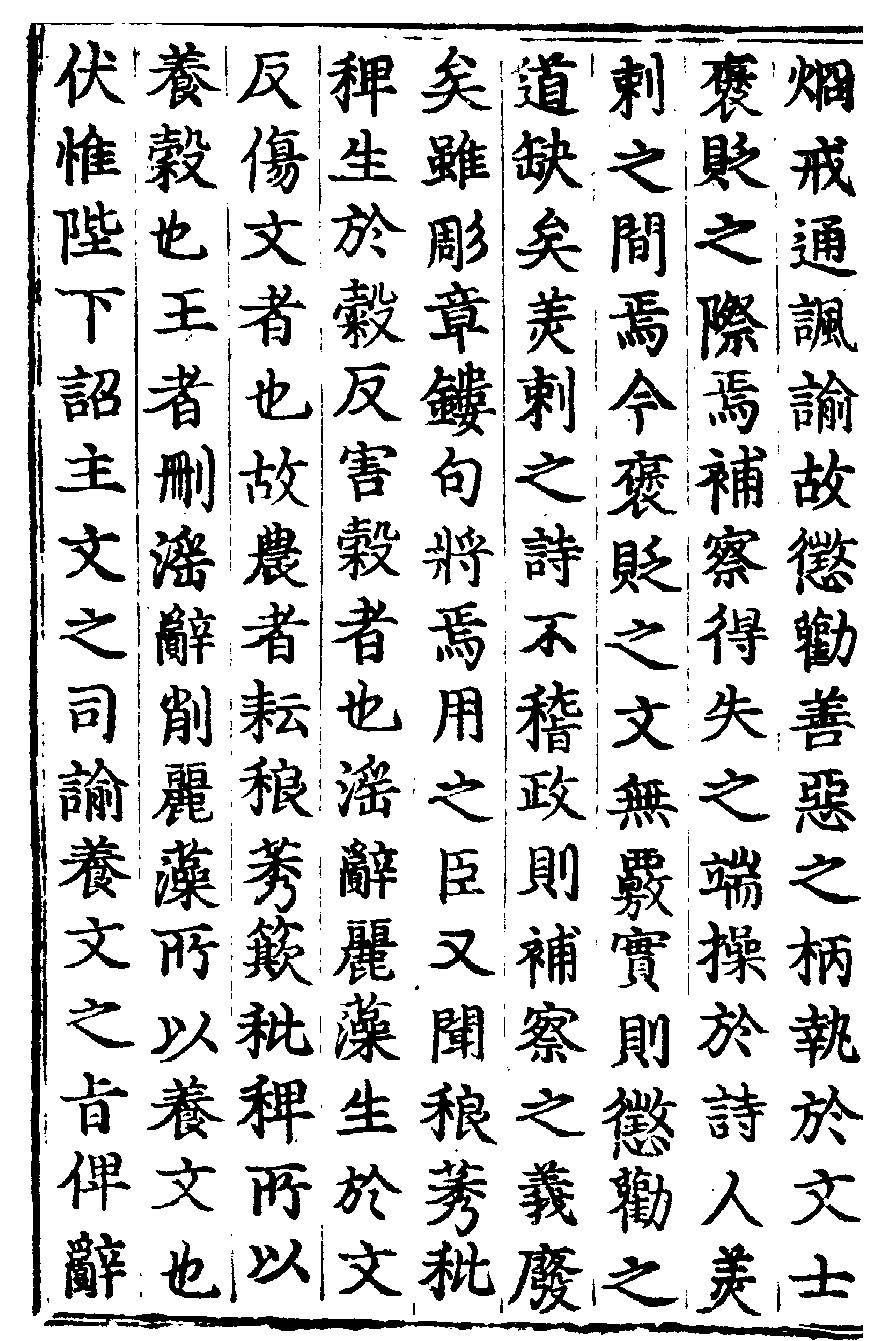 烱戒通諷諭故懲勸善惡之柄執於文士
襃貶之際焉補察得失之端操於詩人美
刺之間焉今襃貶之文無覈實則懲勸之
道缺矣美刺之詩不稽政則補察之義廢
矣雖彫章鏤句將焉用之臣又聞稂莠秕
稗生於穀反害穀者也滛辭麗藻生於文
反傷文者也故農者耘稂莠簸秕稗所以
養穀也王者刪滛辭削麗藻所以養文也
伏惟陛下詔主文之司諭養文之旨俾辭